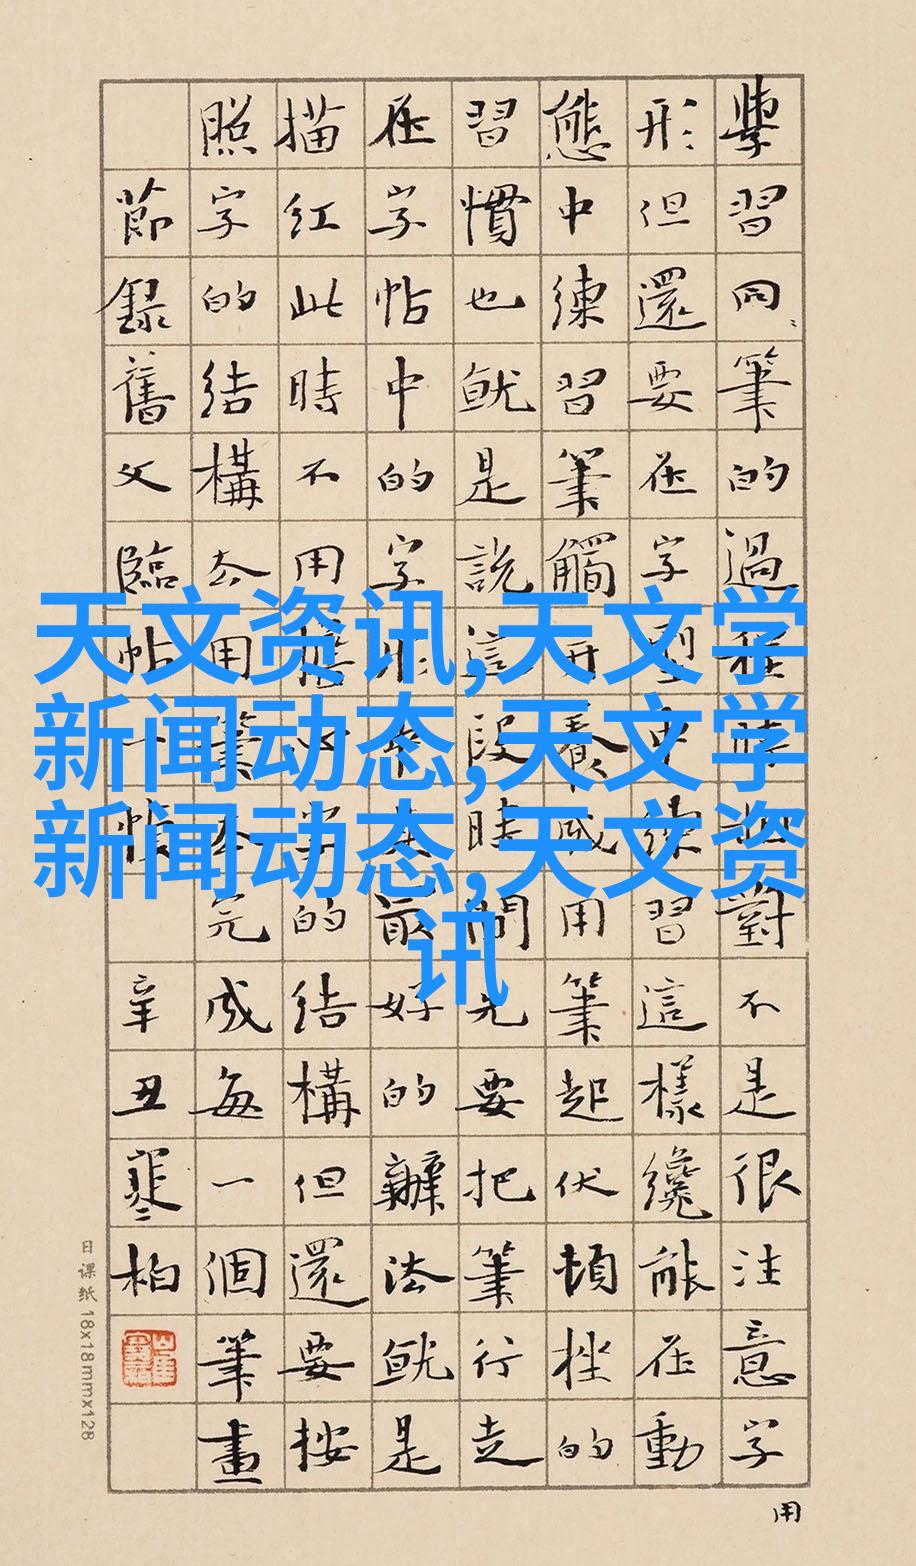 學習同筆的過程對不是很注意字
形但還要在字型中練習這樣纔能在動
態中練習筆觸并養成用筆起伏頓挫的
習慣也就是説這段時間先要把筆行走
在字帖中的字形最好的辦法就是
描紅此時不用的結構但還要按
照字的結構去用筆去完成每一個筆畫
節録舊文臨帖
辛丑寒柏
用
日课纸 18x18mmx128
天文资讯,天文学
新闻动态,天文学
新闻动态,天文资
讯